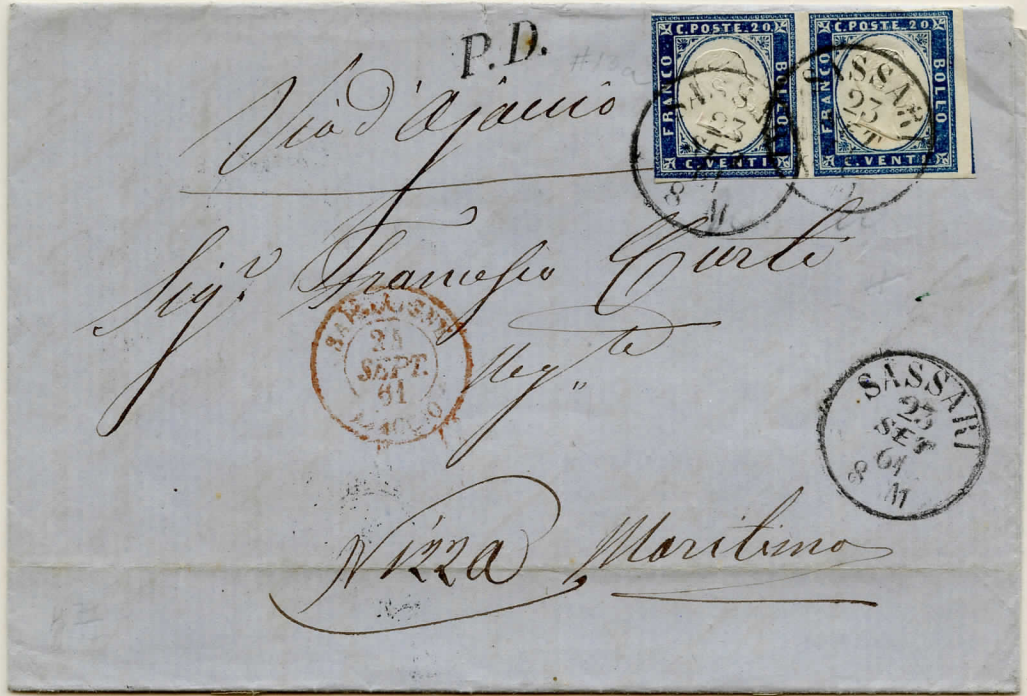 P.D.
#13a
C. POSTE. 20
FRANCO
BOLLO
C. VENTI
C. POSTE. 20
FRANCO
BOLLO
C. VENTI
SASSARI
23
SET
8 M
SASSARI
23
SET
Via d'Ajaccio
Sig.r Francesco Corte
Neg.te
SARD.
SEPT.
61
AJACCIO
SASSARI
23
SET
61
8 M
Nizza Maritima